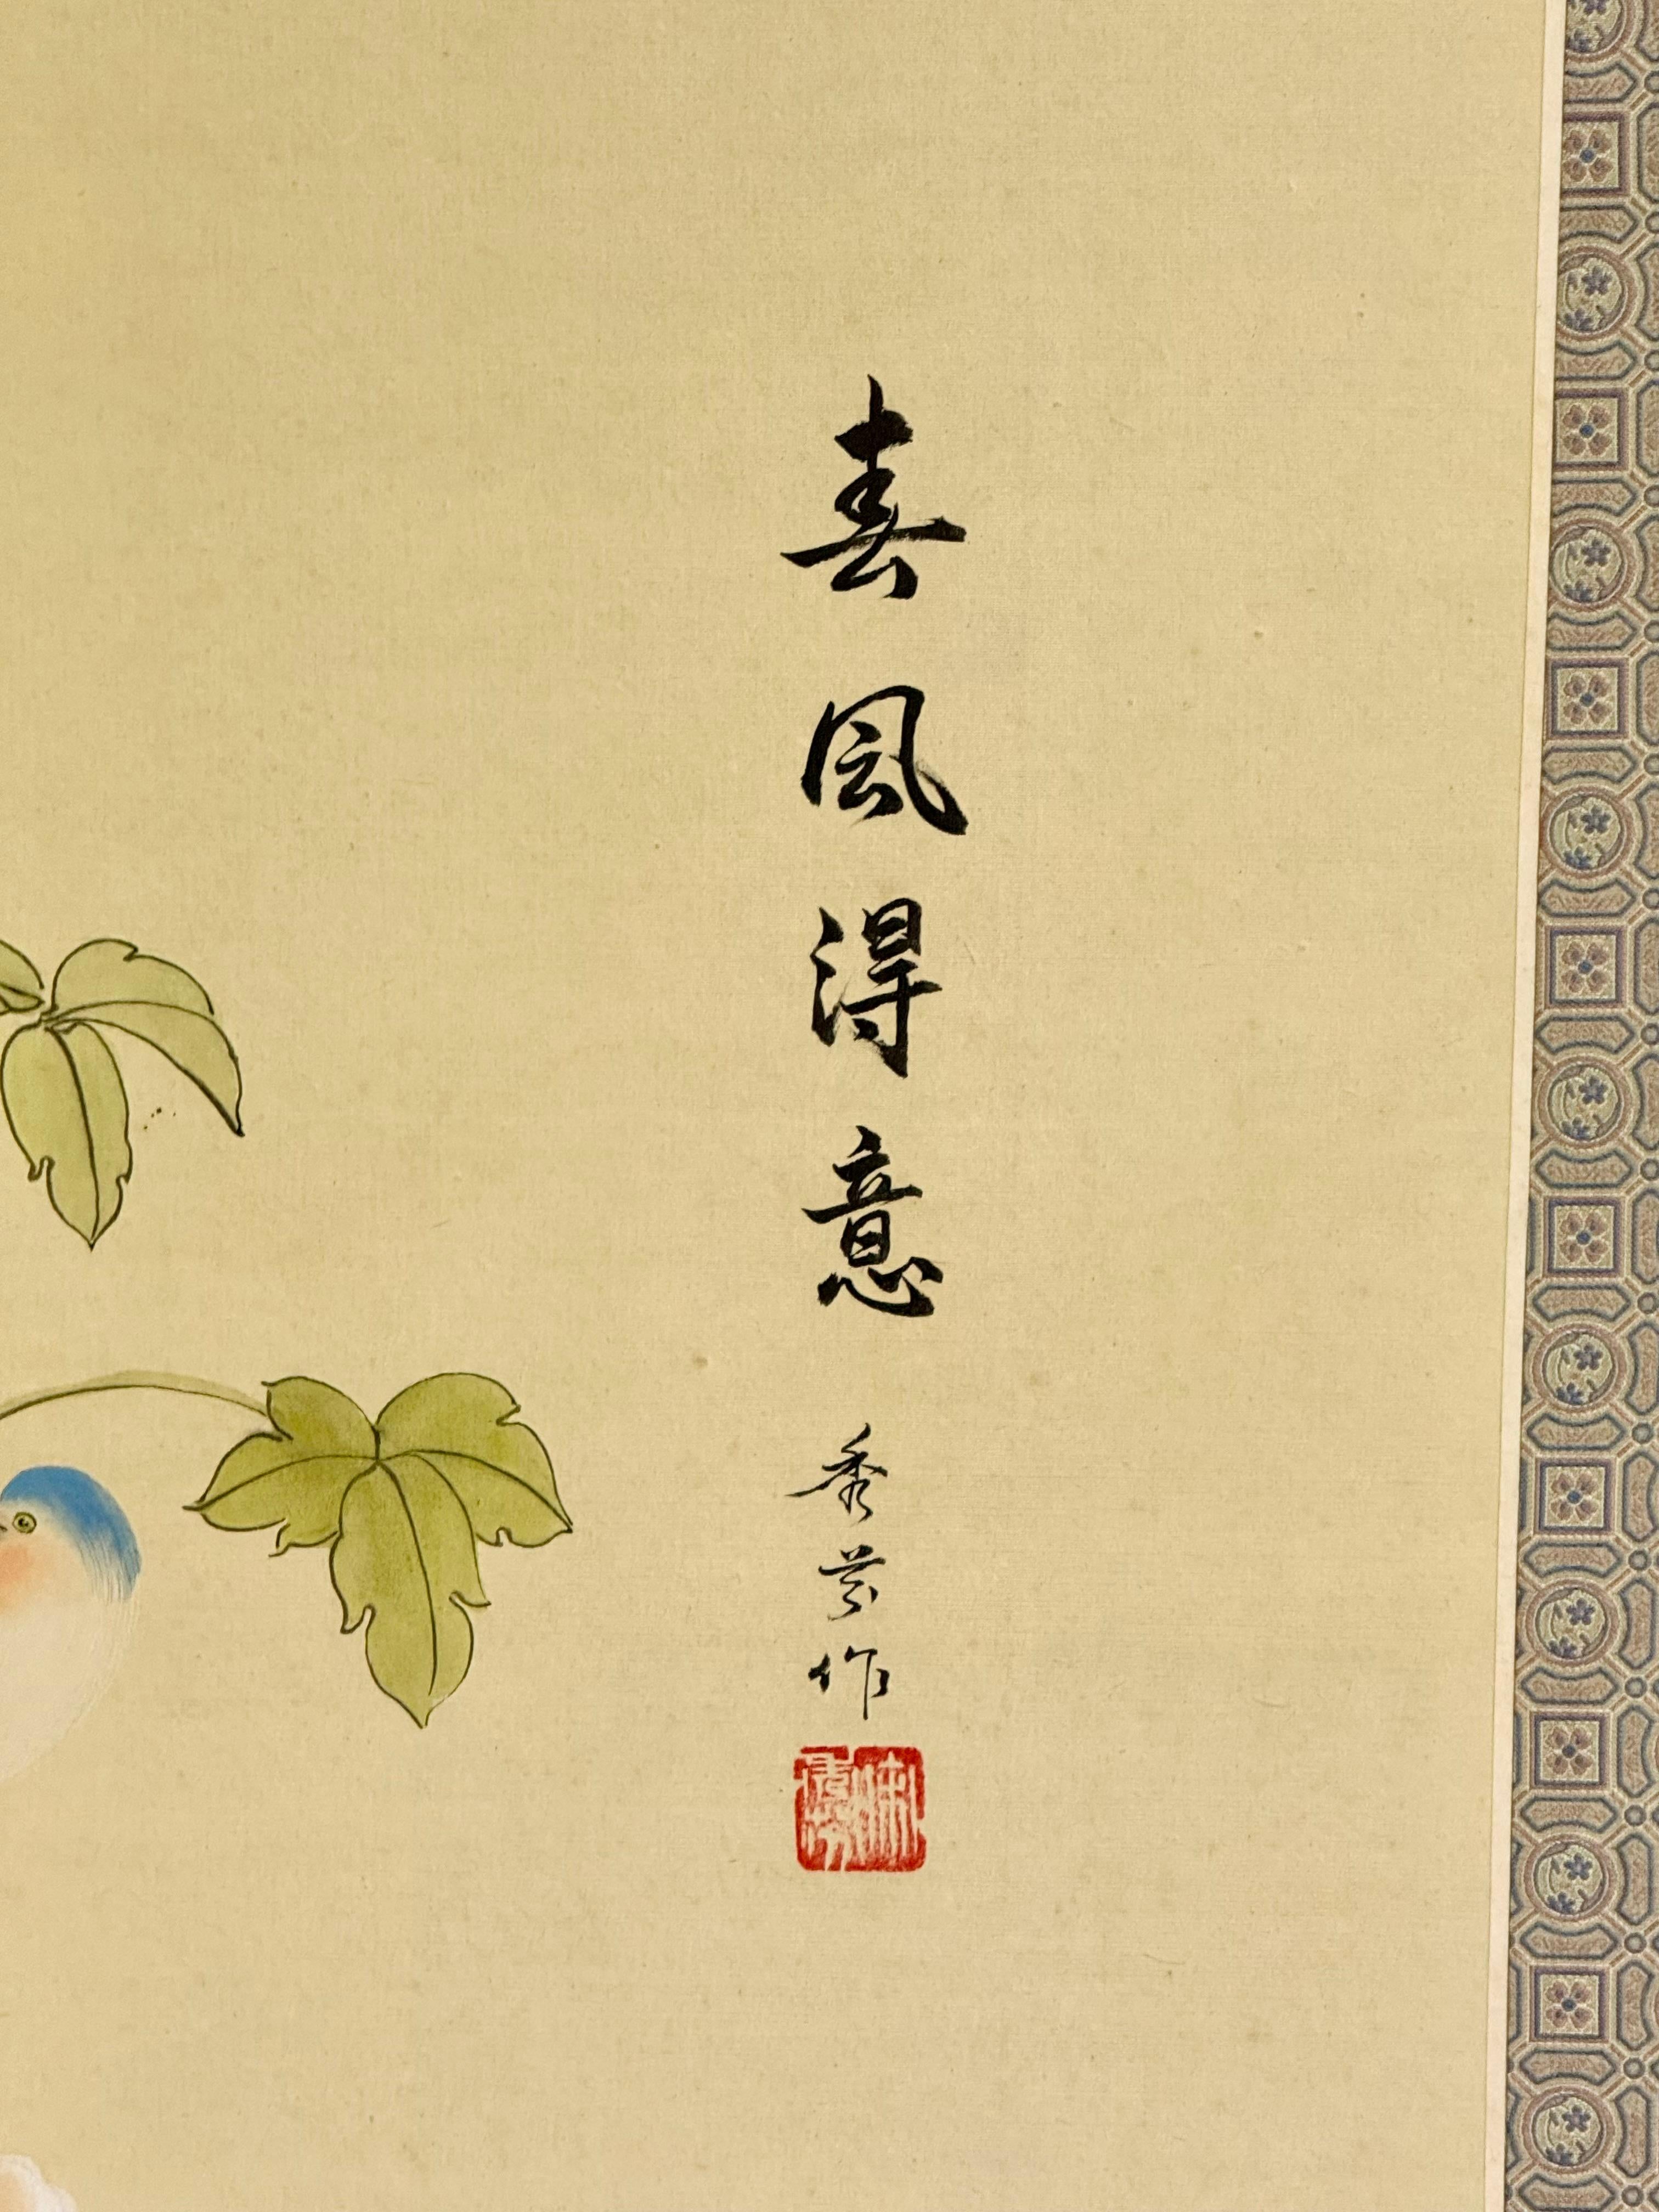 春風得意
秀芬作